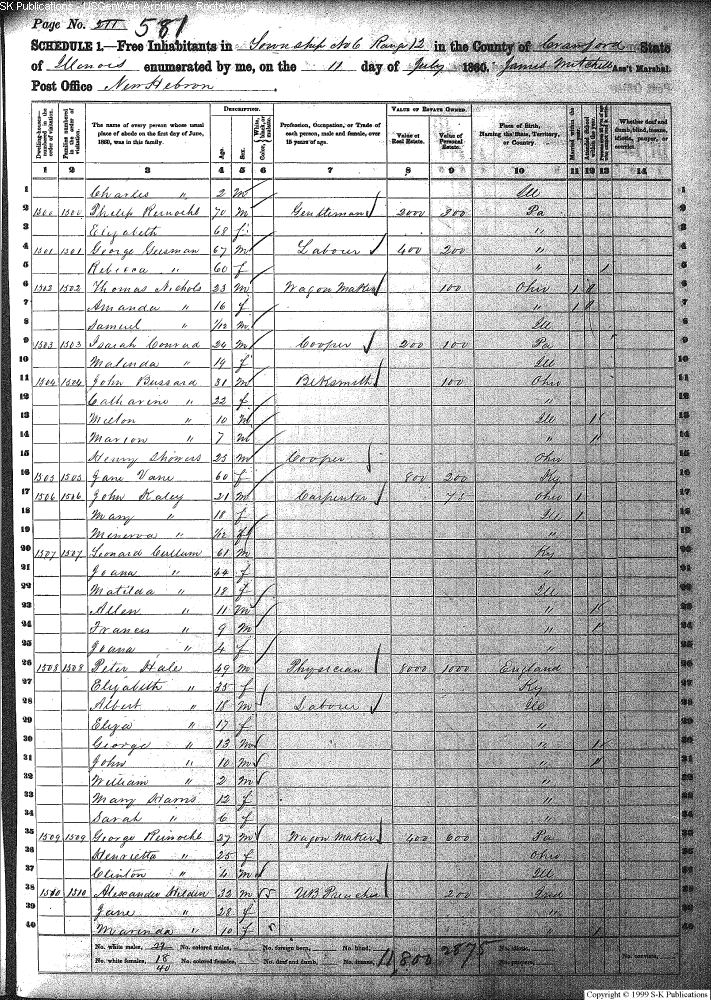 SK Publications - USGenWeb Archives - Rootsweb
Page No. 581
SCHEDULE 1.—Free Inhabitants in Township No 6 Range 12 in the County of Crawford State
of Illinois enumerated by me, on the 11 day of July 1860. James Mitchell Ass't Marshal.
Post Office New Hebron
Dwelling-houses—numbered in the order of visitation. Families numbered in the order of visitation. The name of every person whose usual place of abode on the first day of June, 1860, was in this family. DESCRIPTION. Age. Sex. Color, White, black, or mulatto. Profession, Occupation, or Trade of each person, male and female, over 15 years of age. VALUE OF ESTATE OWNED. Value of Real Estate. Value of Personal Estate. Place of Birth, Naming the State, Territory, or Country. Married within the year. Attended School within the year. Whether deaf and dumb, blind, insane, idiotic, pauper, or convict.
1 2 3 4 5 6 7 8 9 10 11 12 13 14
1 Charles " 2 m Ill 1
2 1500 1500 Philip Reinoehl 70 m Gentleman 2000 300 Pa 2
3 Elizabeth 68 f " 3
4 1501 1501 George Geisman 67 m Labourer 400 200 " 4
5 Rebecca " 60 f " 1 5
6 1502 1502 Thomas Nichols 23 m Wagon Maker 100 Ohio 1 6
7 Amanda " 16 f " 1 7
8 Samuel " 1/12 m Ill 8
9 1503 1503 Isaiah Conrad 24 m Cooper 200 100 Pa 9
10 Malinda " 19 f Ill 10
11 1504 1504 John Bussard 31 m Blksmith 100 Ohio 11
12 Catharine " 22 f " 12
13 Milton " 10 m Ill 1 13
14 Marion " 7 m " 1 14
15 Henry Showers 23 m Cooper Ohio 15
16 1505 1505 Jane Vane 60 f 800 200 Ky 16
17 1506 1506 John Kaley 21 m Carpenter 75 Ohio 1 17
18 Mary " 18 f Ill 1 18
19 Minerva " f " 19
20 1507 1507 Leonard Cullum 61 m Ky 20
21 Joana " 44 f " 21
22 Matilda " 18 f Ill 22
23 Allen " 11 m " 1 23
24 Francis " 9 m " 1 24
25 Joana " 4 f " 25
26 1508 1508 Peter Hale 49 m Physician 8000 1000 England 26
27 Elizabeth " 35 f Ky 27
28 Albert " 18 m Labourer Ill 28
29 Eliza " 17 f " 29
30 George " 13 m " 1 30
31 John " 10 m " 31
32 William " 2 m " 32
33 Mary Harris 12 f " 33
34 Sarah " 6 f " 34
35 1509 1509 George Reinoehl 27 m Wagon Maker 400 600 Pa 35
36 Henrietta " 25 f Ohio 36
37 Clinton " 4 m Ill 37
38 1510 1510 Alexander Helden 32 m UB Preacher 200 Ind 38
39 Jane " 28 f " 39
40 Marinda " 10 f " 40
No. white males, 22 No. colored males, No. foreign born, No. blind, 11,800 2875 No. idiotic,
No. white females, 18 No. colored females, No. deaf and dumb, No. insane, No. paupers, No. convicts,
40
Copyright © 1999 S-K Publications